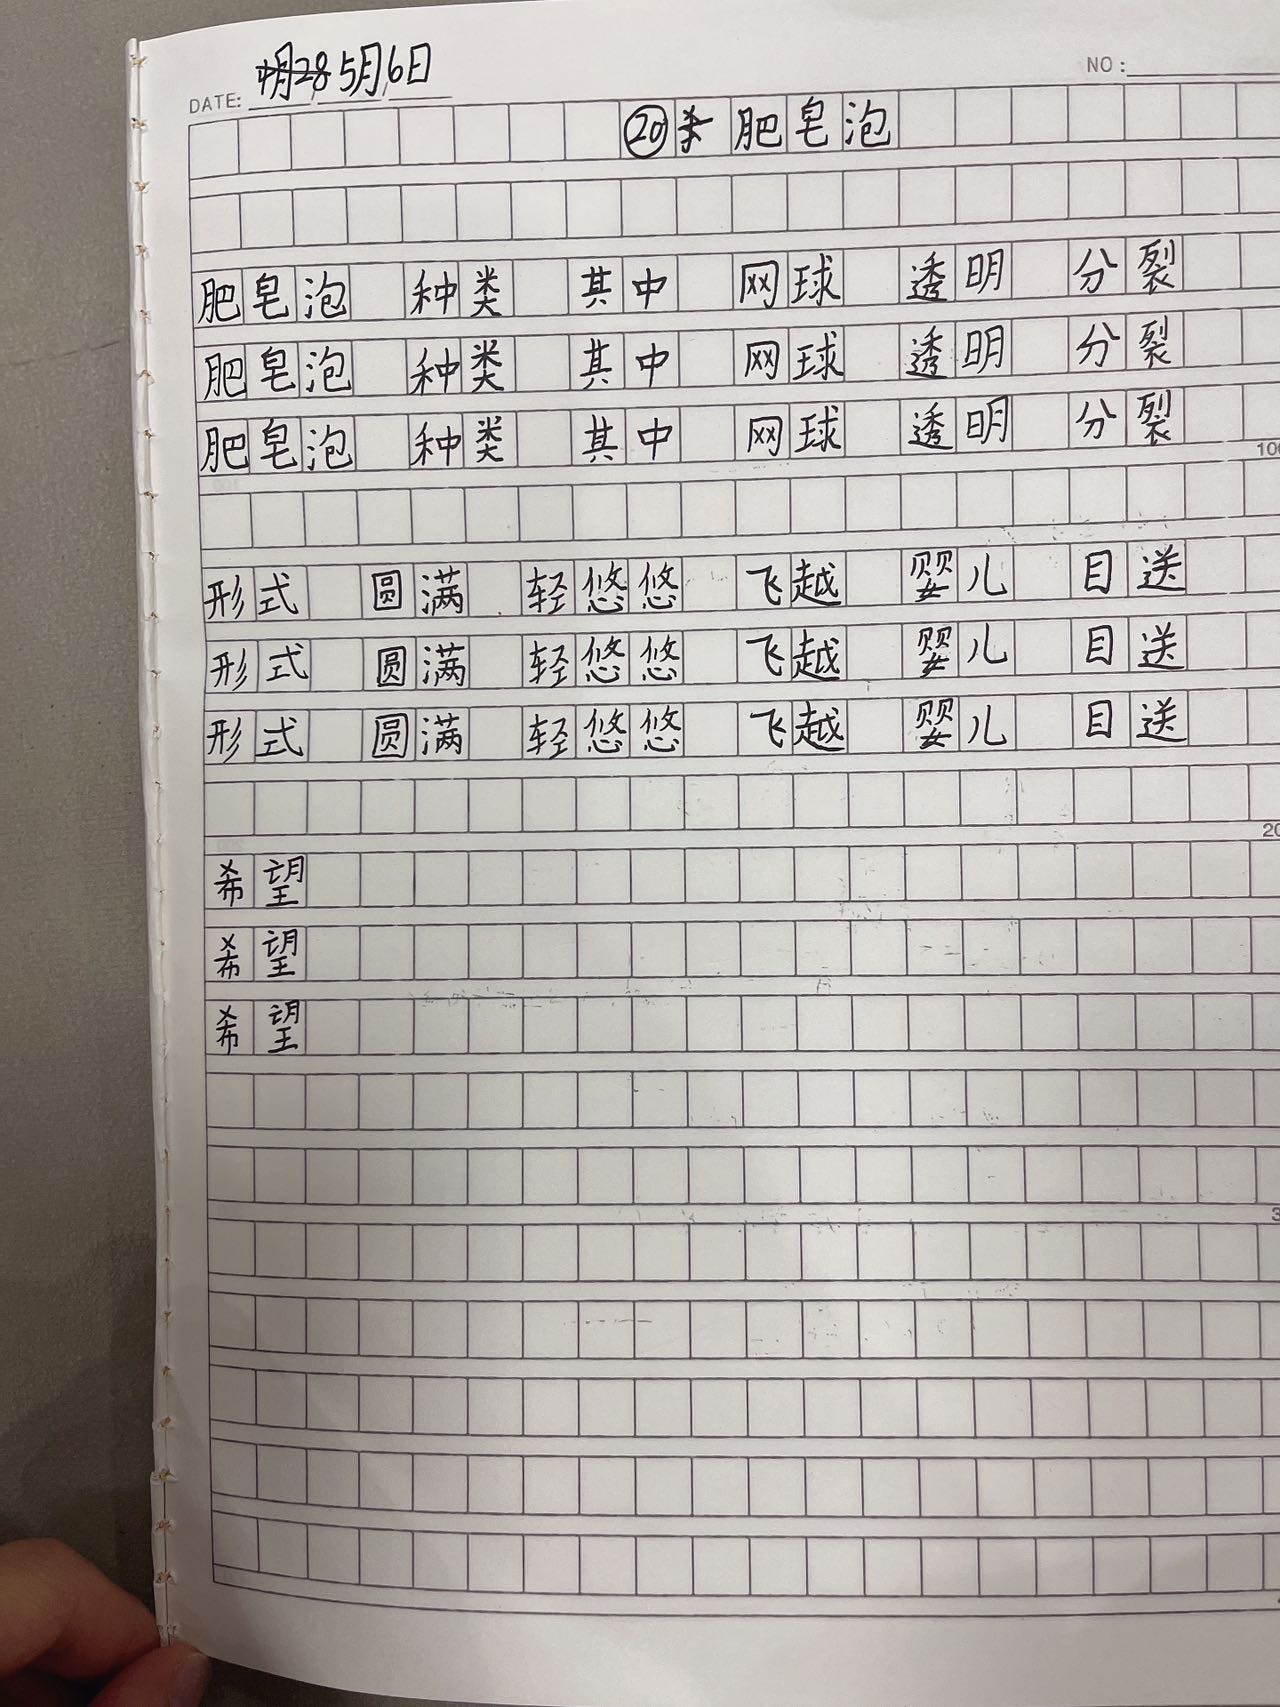 5月6日
DATE:
NO:
⑳ 肥皂泡
肥皂泡 种类 其中 网球 透明 分裂
肥皂泡 种类 其中 网球 透明 分裂
肥皂泡 种类 其中 网球 透明 分裂
100
形式 圆满 轻悠悠 飞越 婴儿 目送
形式 圆满 轻悠悠 飞越 婴儿 目送
形式 圆满 轻悠悠 飞越 婴儿 目送
希望
希望
希望